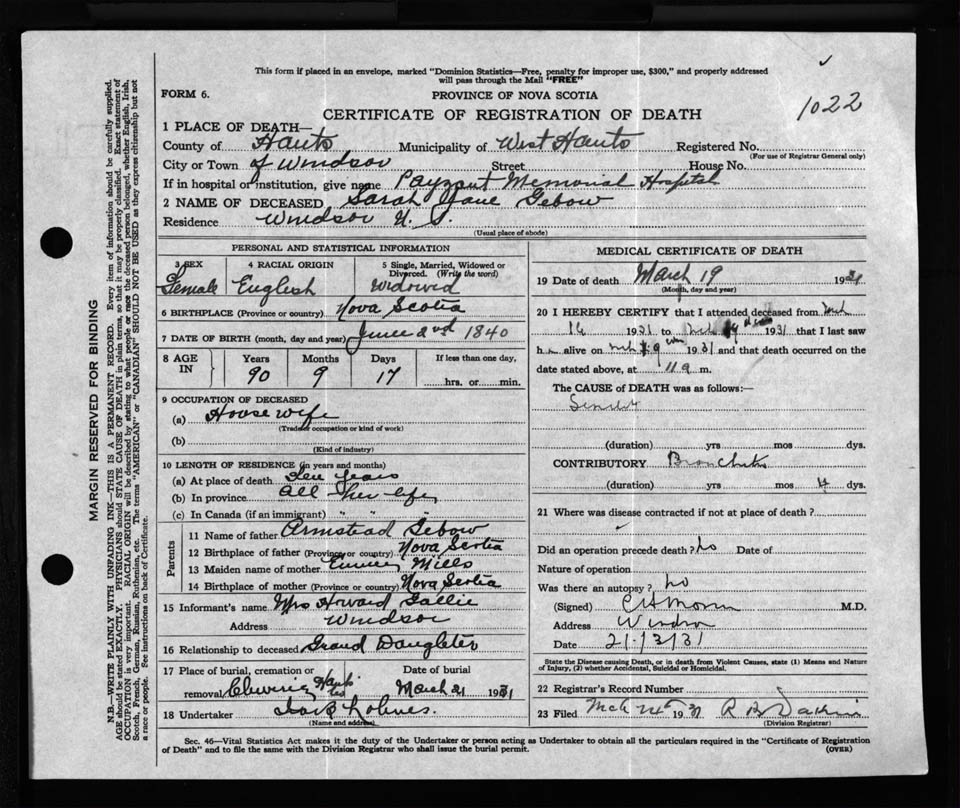 This form if placed in an envelope, marked "Dominion Statistics—Free, penalty for improper use, $300," and properly addressed
will pass through the Mail "FREE"
FORM 6.
PROVINCE OF NOVA SCOTIA
1022
CERTIFICATE OF REGISTRATION OF DEATH
1 PLACE OF DEATH—
County of Hants Municipality of West Hants Registered No.
(For use of Registrar General only)
City or Town of Windsor Street House No.
If in hospital or institution, give name Payzant Memorial Hospital
2 NAME OF DECEASED Sarah Jane Gebow
Residence Windsor N. S.
(Usual place of abode)
PERSONAL AND STATISTICAL INFORMATION
3 SEX 4 RACIAL ORIGIN 5 Single, Married, Widowed or Divorced. (Write the word)
Female English Widowed
6 BIRTHPLACE (Province or country) Nova Scotia
7 DATE OF BIRTH (month, day and year) June 2nd 1840
8 AGE IN Years Months Days If less than one day,
90 9 17 hrs. or min.
9 OCCUPATION OF DECEASED
(a) House wife
(Trade or occupation or kind of work)
(b)
(Kind of industry)
10 LENGTH OF RESIDENCE (in years and months)
(a) At place of death Ten years
(b) In province All her life
(c) In Canada (if an immigrant) " " "
Parents
11 Name of father Armstead Gebow
12 Birthplace of father (Province or country) Nova Scotia
13 Maiden name of mother Mills
14 Birthplace of mother (Province or country) Nova Scotia
15 Informant's name Mrs Howard Gallie
Address Windsor
16 Relationship to deceased Grand Daughter
17 Place of burial, cremation or Date of burial
removal Hants March 21 1931
18 Undertaker
(Name and address)
MEDICAL CERTIFICATE OF DEATH
19 Date of death March 19 1931
(Month, day and year)
20 I HEREBY CERTIFY that I attended deceased from Mch
16 1931 to Mch 19 1931 that I last saw
h alive on Mch 19 1931 and that death occurred on the
date stated above, at 11 a m.
The CAUSE of DEATH was as follows:—
(duration) yrs mos dys.
CONTRIBUTORY Bronchitis
(duration) yrs mos 4 dys.
21 Where was disease contracted if not at place of death?
Did an operation precede death? No Date of
Nature of operation
Was there an autopsy? No
(Signed) M.D.
Address Windsor
Date 21/3/31
State the Disease causing Death, or in death from Violent Causes, state (1) Means and Nature
of Injury, (2) whether Accidental, Suicidal or Homicidal.
22 Registrar's Record Number
23 Filed Mch 1931 R B Dakin
(Division Registrar)
Sec. 46—Vital Statistics Act makes it the duty of the Undertaker or person acting as Undertaker to obtain all the particulars required in the "Certificate of Registration
of Death" and to file the same with the Division Registrar who shall issue the burial permit.
(OVER)
MARGIN RESERVED FOR BINDING
N.B.—WRITE PLAINLY WITH UNFADING INK—THIS IS A PERMANENT RECORD. Every item of information should be carefully supplied.
AGE should be stated EXACTLY. PHYSICIANS should STATE CAUSE OF DEATH in plain terms, so that it may be properly classified. Exact statement of
OCCUPATION is very important. RACIAL ORIGIN will be described by stating to what people or race the deceased person belonged, whether English, Irish,
Scotch, French, German, Russian, Ruthenian, etc. The terms "AMERICAN" or "CANADIAN" SHOULD NOT BE USED as they express citizenship but not
a race or people. See instructions on back of Certificate.